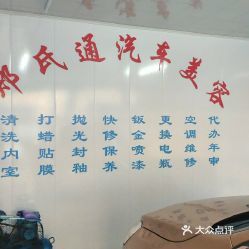 郑氏通汽车美容
清洗内室
打蜡贴膜
抛光封釉
快修保养
钣金喷漆
更换电瓶
空调维修
代办年审
大众点评